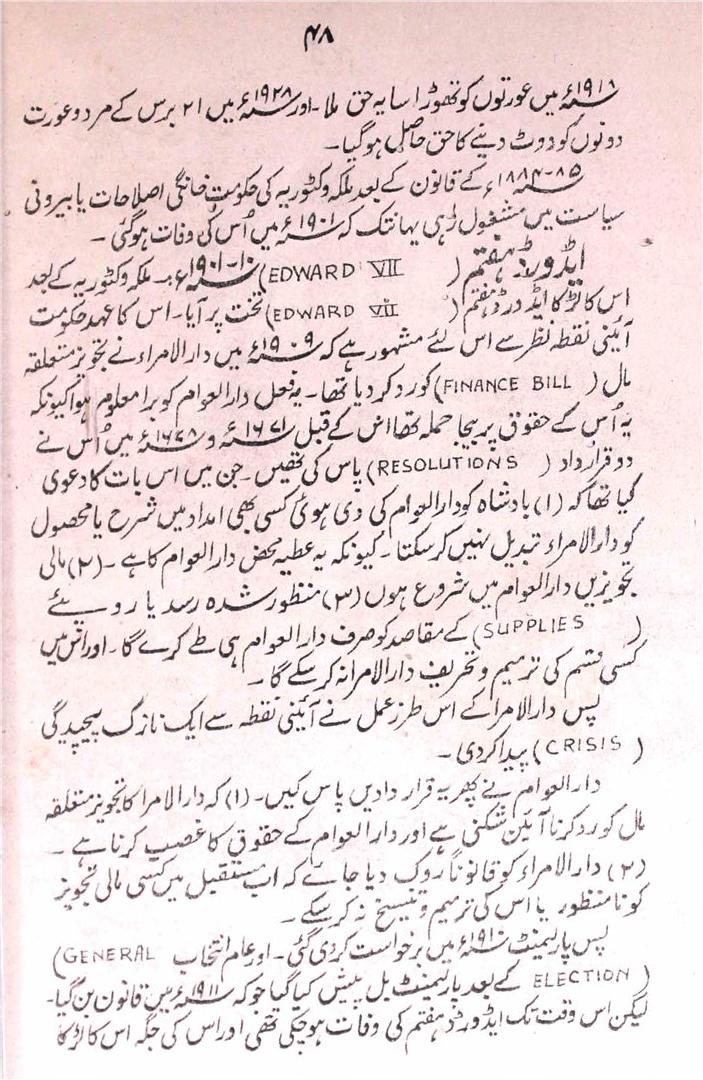 ۴۸
۱۹۱۸ء میں عورتوں کو تھوڑا سا یہ حق ملا۔ اور ۱۹۲۸ء میں ۲۱ برس کے مرد و عورت
دونوں کو ووٹ دینے کا حق حاصل ہو گیا۔
۸۵-۱۸۸۴ء کے قانون کے بعد ملکہ وکٹوریہ کی حکومت خانگی اصلاحات یا بیرونی
سیاست میں مشغول رہی یہانتک کہ ۱۹۰۱ء میں اُس کی وفات ہو گئی۔
ایڈورڈ ہفتم (EDWARD VII) ۱۰-۱۹۰۱ء :۔ ملکہ وکٹوریہ کے بعد
اس کا لڑکا ایڈورڈ ہفتم (EDWARD VII) تخت پر آیا۔ اس کا عہد حکومت
آئینی نقطہ نظر سے اس لئے مشہور ہے کہ ۱۹۰۹ء میں دارالامراء نے تجویز متعلقہ
مال (FINANCE BILL) کو رد کر دیا تھا۔ یہ فعل دارالعوام کو برا معلوم ہوا کیونکہ
یہ اُس کے حقوق پر بیجا حملہ تھا اس کے قبل ۱۶۷۱ء و ۱۶۷۸ء میں اُس نے
دو قرارداد (RESOLUTIONS) پاس کی تھیں۔ جن میں اس بات کا دعوی
کیا تھا کہ (۱) بادشاہ کو دارالعوام کی دی ہوئی کسی بھی امداد میں شرح یا محصول
کو دارالامراء تبدیل نہیں کر سکتا۔ کیونکہ یہ عطیہ محض دارالعوام کا ہے۔ (۲) مالی
تجویزیں دارالعوام میں شروع ہوں (۳) منظور شدہ رسد یا روپئے
(SUPPLIES) کے مقاصد کو صرف دارالعوام ہی طے کرے گا۔ اور اس میں
کسی قسم کی ترمیم و تحریف دارالامرا نہ کر سکے گا۔
پس دارالامرا کے اس طرز عمل نے آئینی نقطہ سے ایک نازک پیچیدگی
(CRISIS) پیدا کر دی۔
دارالعوام نے پھر یہ قراردادیں پاس کیں۔ (۱) کہ دارالامرا کا تجویز متعلقہ
مال کو رد کرنا آئین شکنی ہے اور دارالعوام کے حقوق کا غصب کرنا ہے۔
(۲) دارالامراء کو قانوناً روک دیا جائے کہ اب مستقبل میں کسی مالی تجویز
کو نامنظور یا اس کی ترمیم و تنسیخ نہ کر سکے۔
پس پارلیمنٹ ۱۹۱۰ء میں برخواست کر دی گئی۔ اور عام انتخاب (GENERAL
ELECTION) کے بعد پارلیمنٹ بل پیش کیا گیا جو کہ ۱۹۱۱ء میں قانون بن گیا۔
لیکن اس وقت تک ایڈورڈ ہفتم کی وفات ہو چکی تھی اور اس کی جگہ اس کا لڑکا